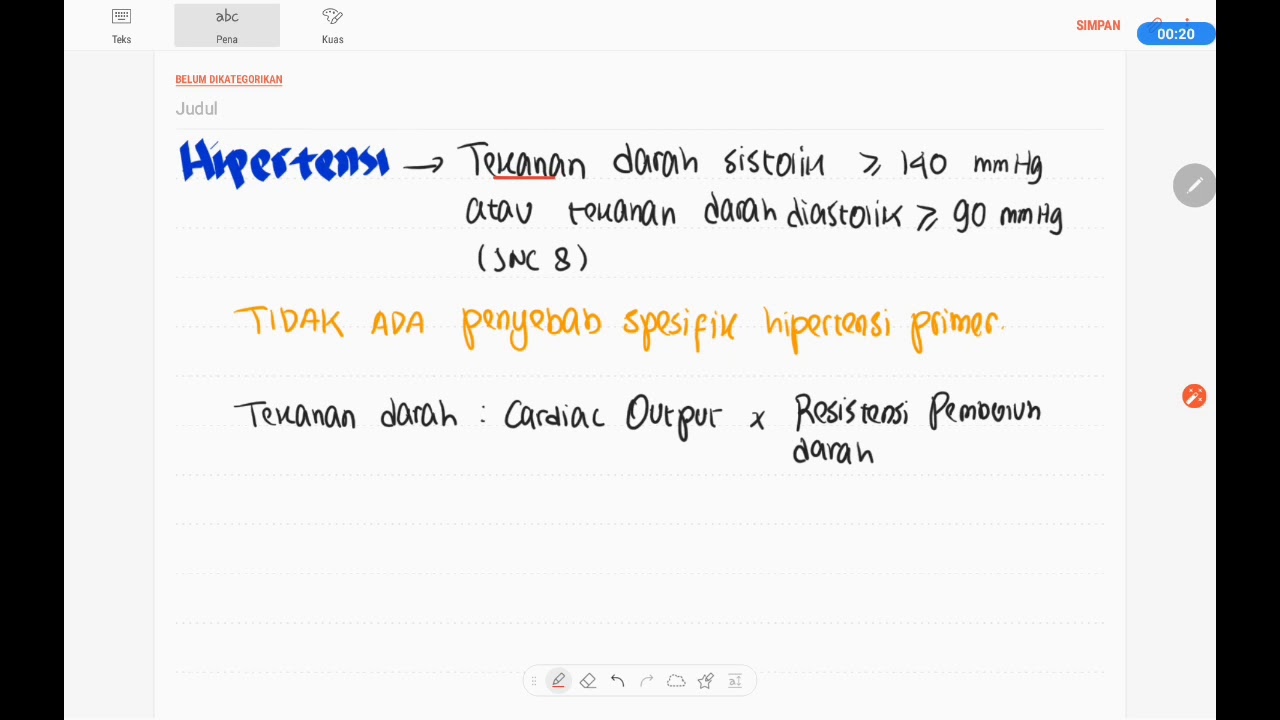 Teks
abc
Pena
Kuas
SIMPAN
00:20
BELUM DIKATEGORIKAN
Judul
Hipertensi → Tekanan darah sistolik ≥ 140 mmHg
atau tekanan darah diastolik ≥ 90 mmHg
(JNC 8)
TIDAK ADA penyebab spesifik hipertensi primer.
Tekanan darah : Cardiac Output x Resistensi Pembuluh
darah